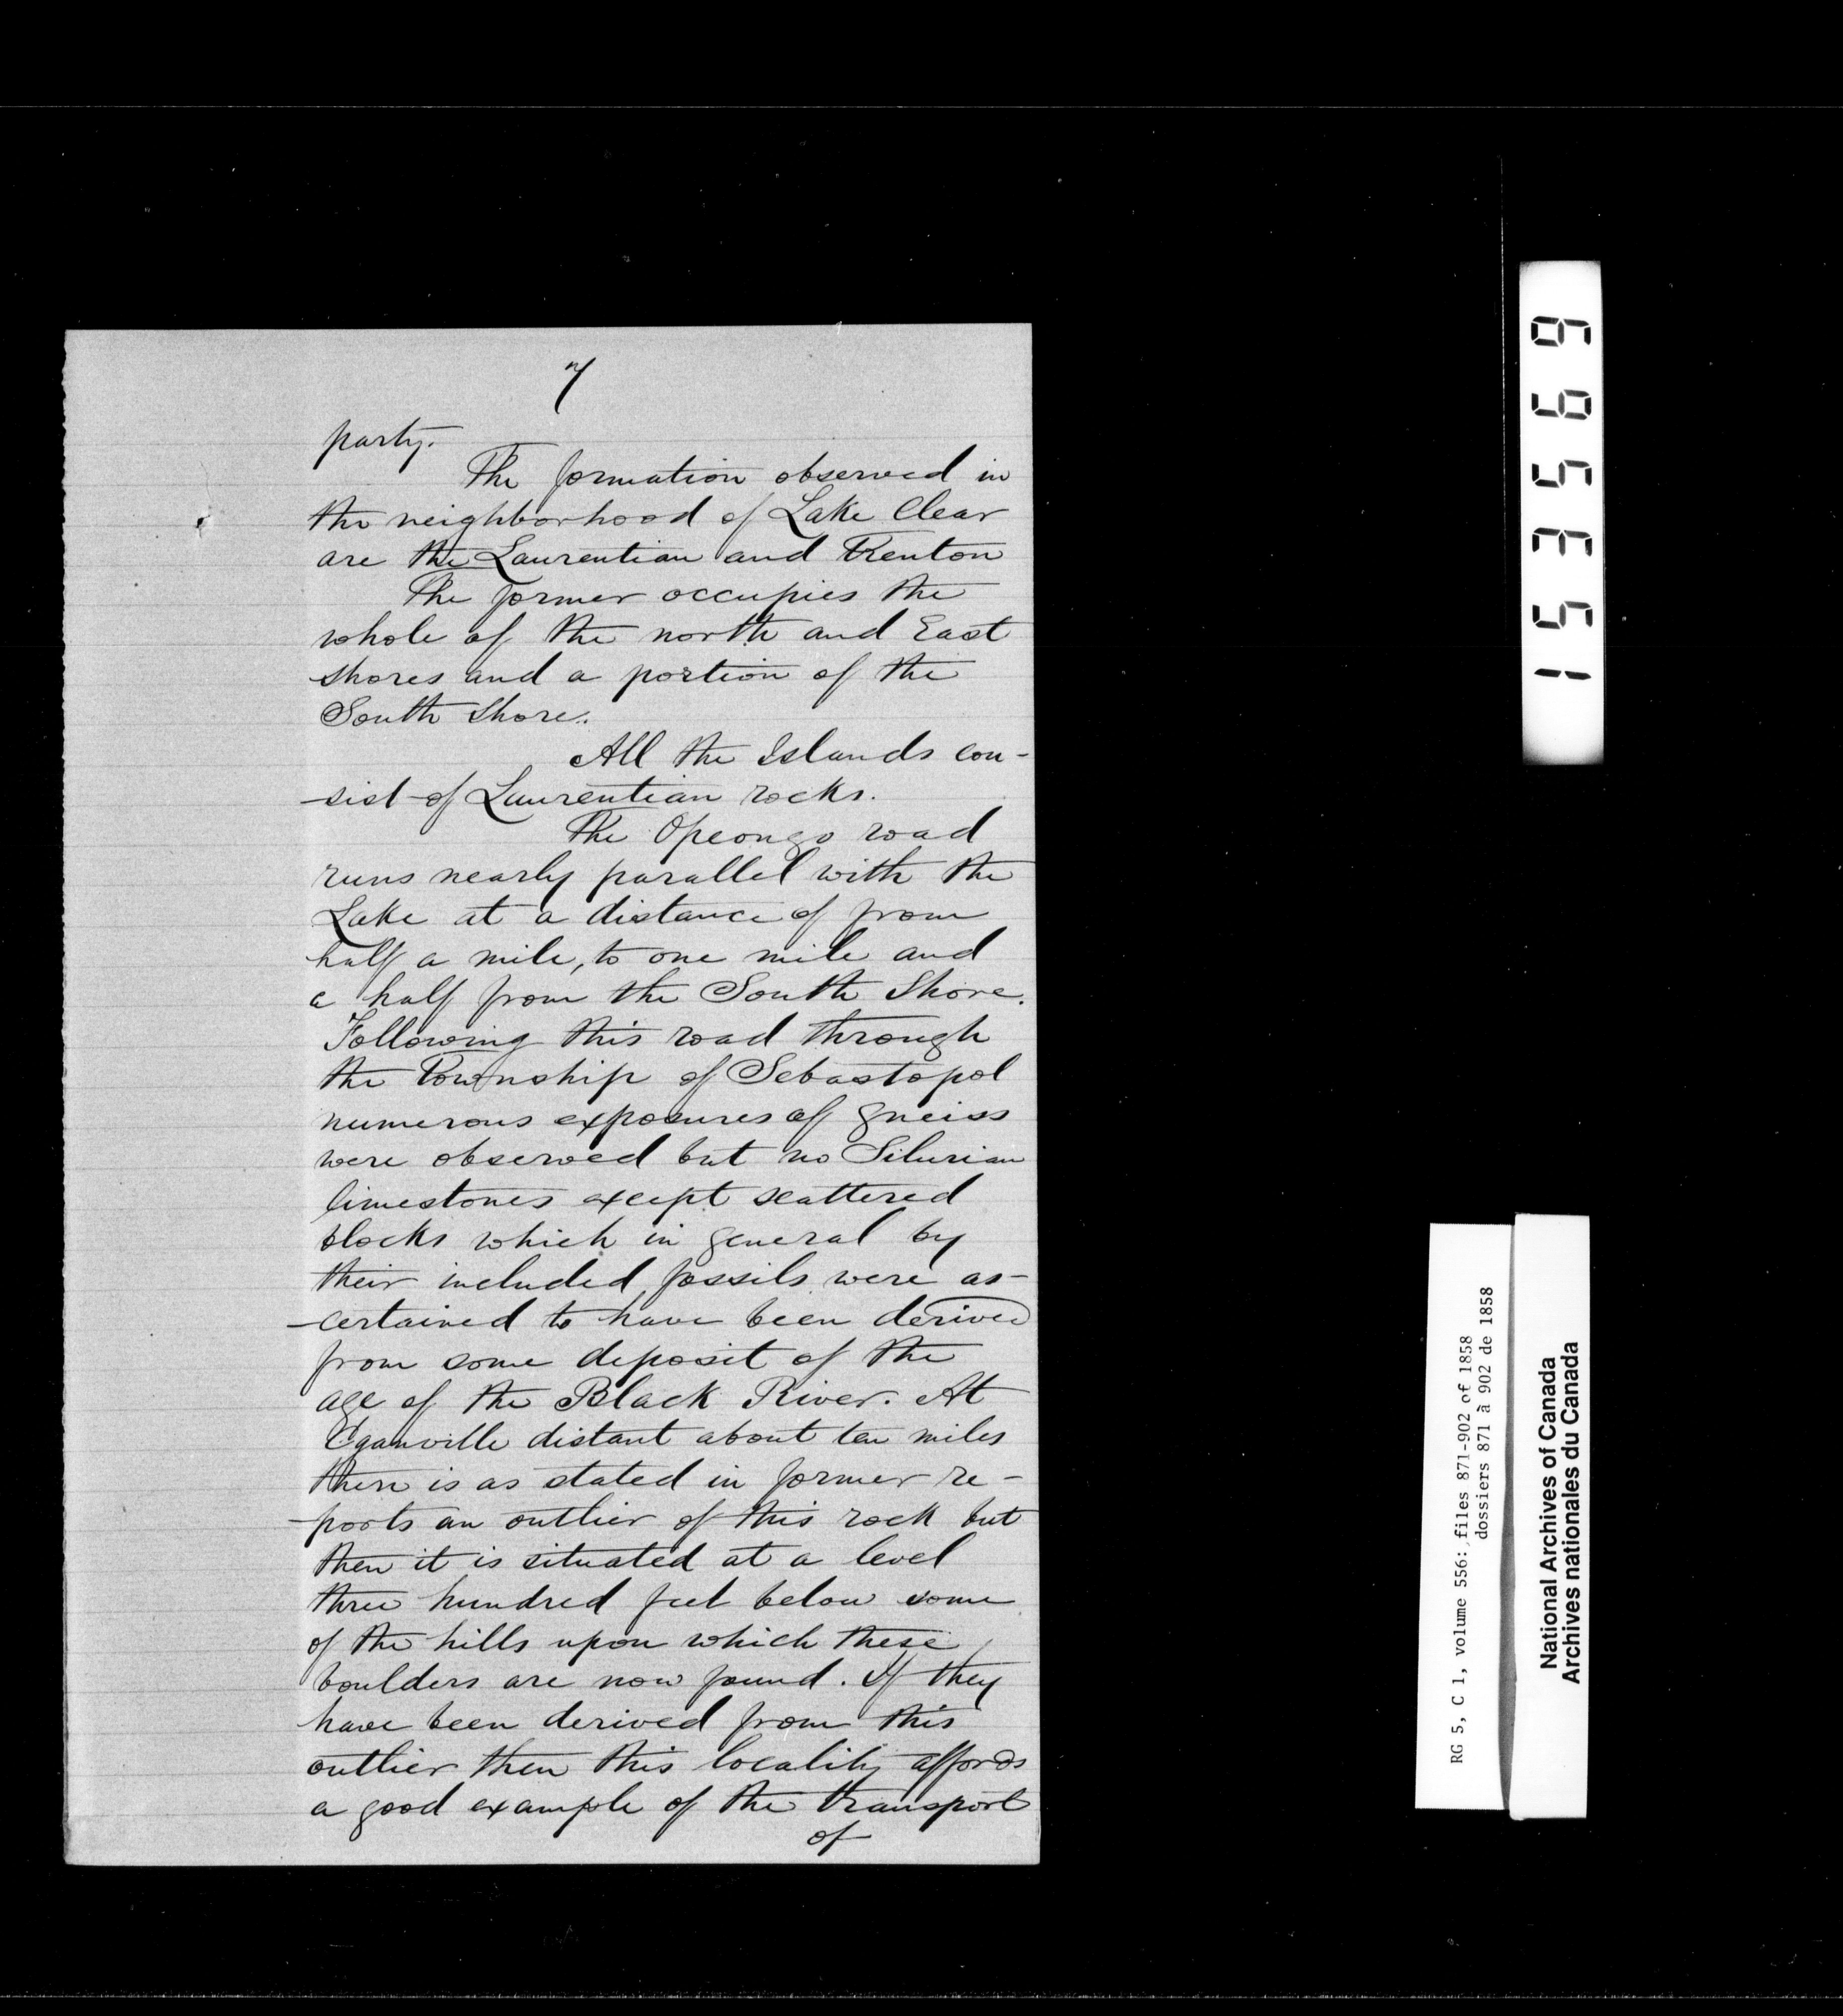 7
party.
The formation observed in
the neighborhood of Lake Clear
are the Laurentian and Trenton
The former occupies the
whole of the north and East
shores and a portion of the
South Shore.
All the Islands con-
-sist of Laurentian rocks.
The Opeongo road
runs nearly parallel with the
Lake at a distance of from
half a mile, to one mile and
a half from the South Shore.
Following this road through
the Township of Sebastopol
numerous exposures of gneiss
were observed but no Silurian
limestones except scattered
blocks which in general by
their included fossils were as-
-certained to have been derived
from some deposit of the
age of the Black River. At
Eganville distant about ten miles
there is as stated in former re-
-ports an outlier of this rock but
then it is situated at a level
three hundred feet below some
of the hills upon which these
boulders are now found. If they
have been derived from this
outlier then this locality affords
a good example of the transport
of
153569
RG 5, C 1, volume 556: files 871-902 of 1858
dossiers 871 à 902 de 1858
National Archives of Canada
Archives nationales du Canada